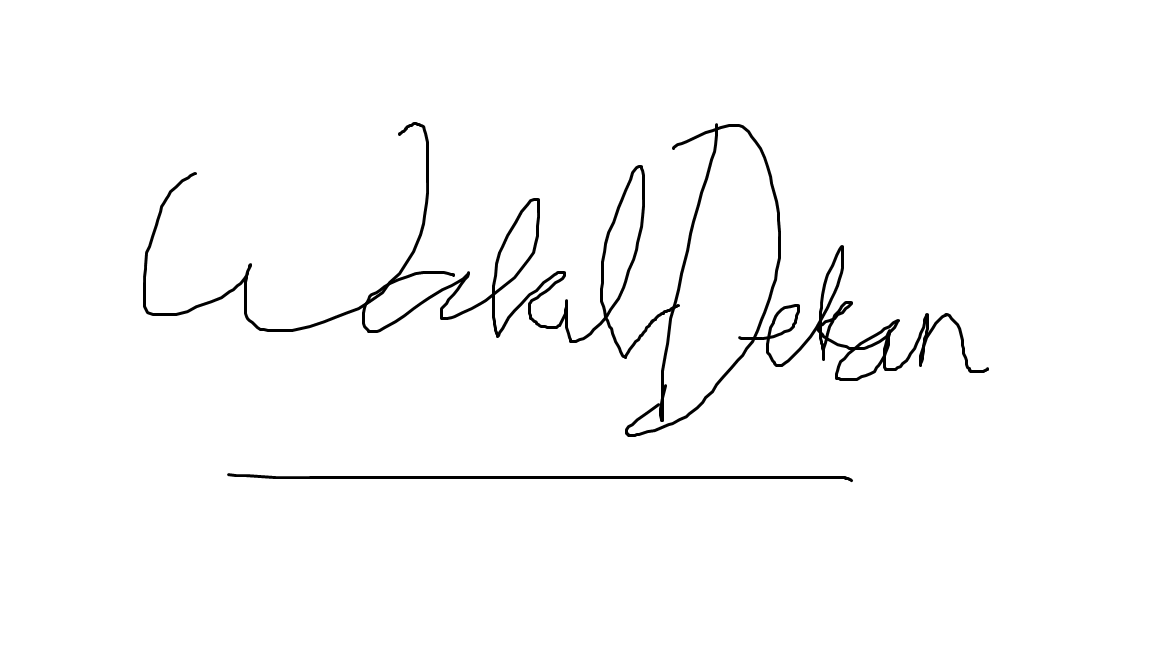 Walal Dekan